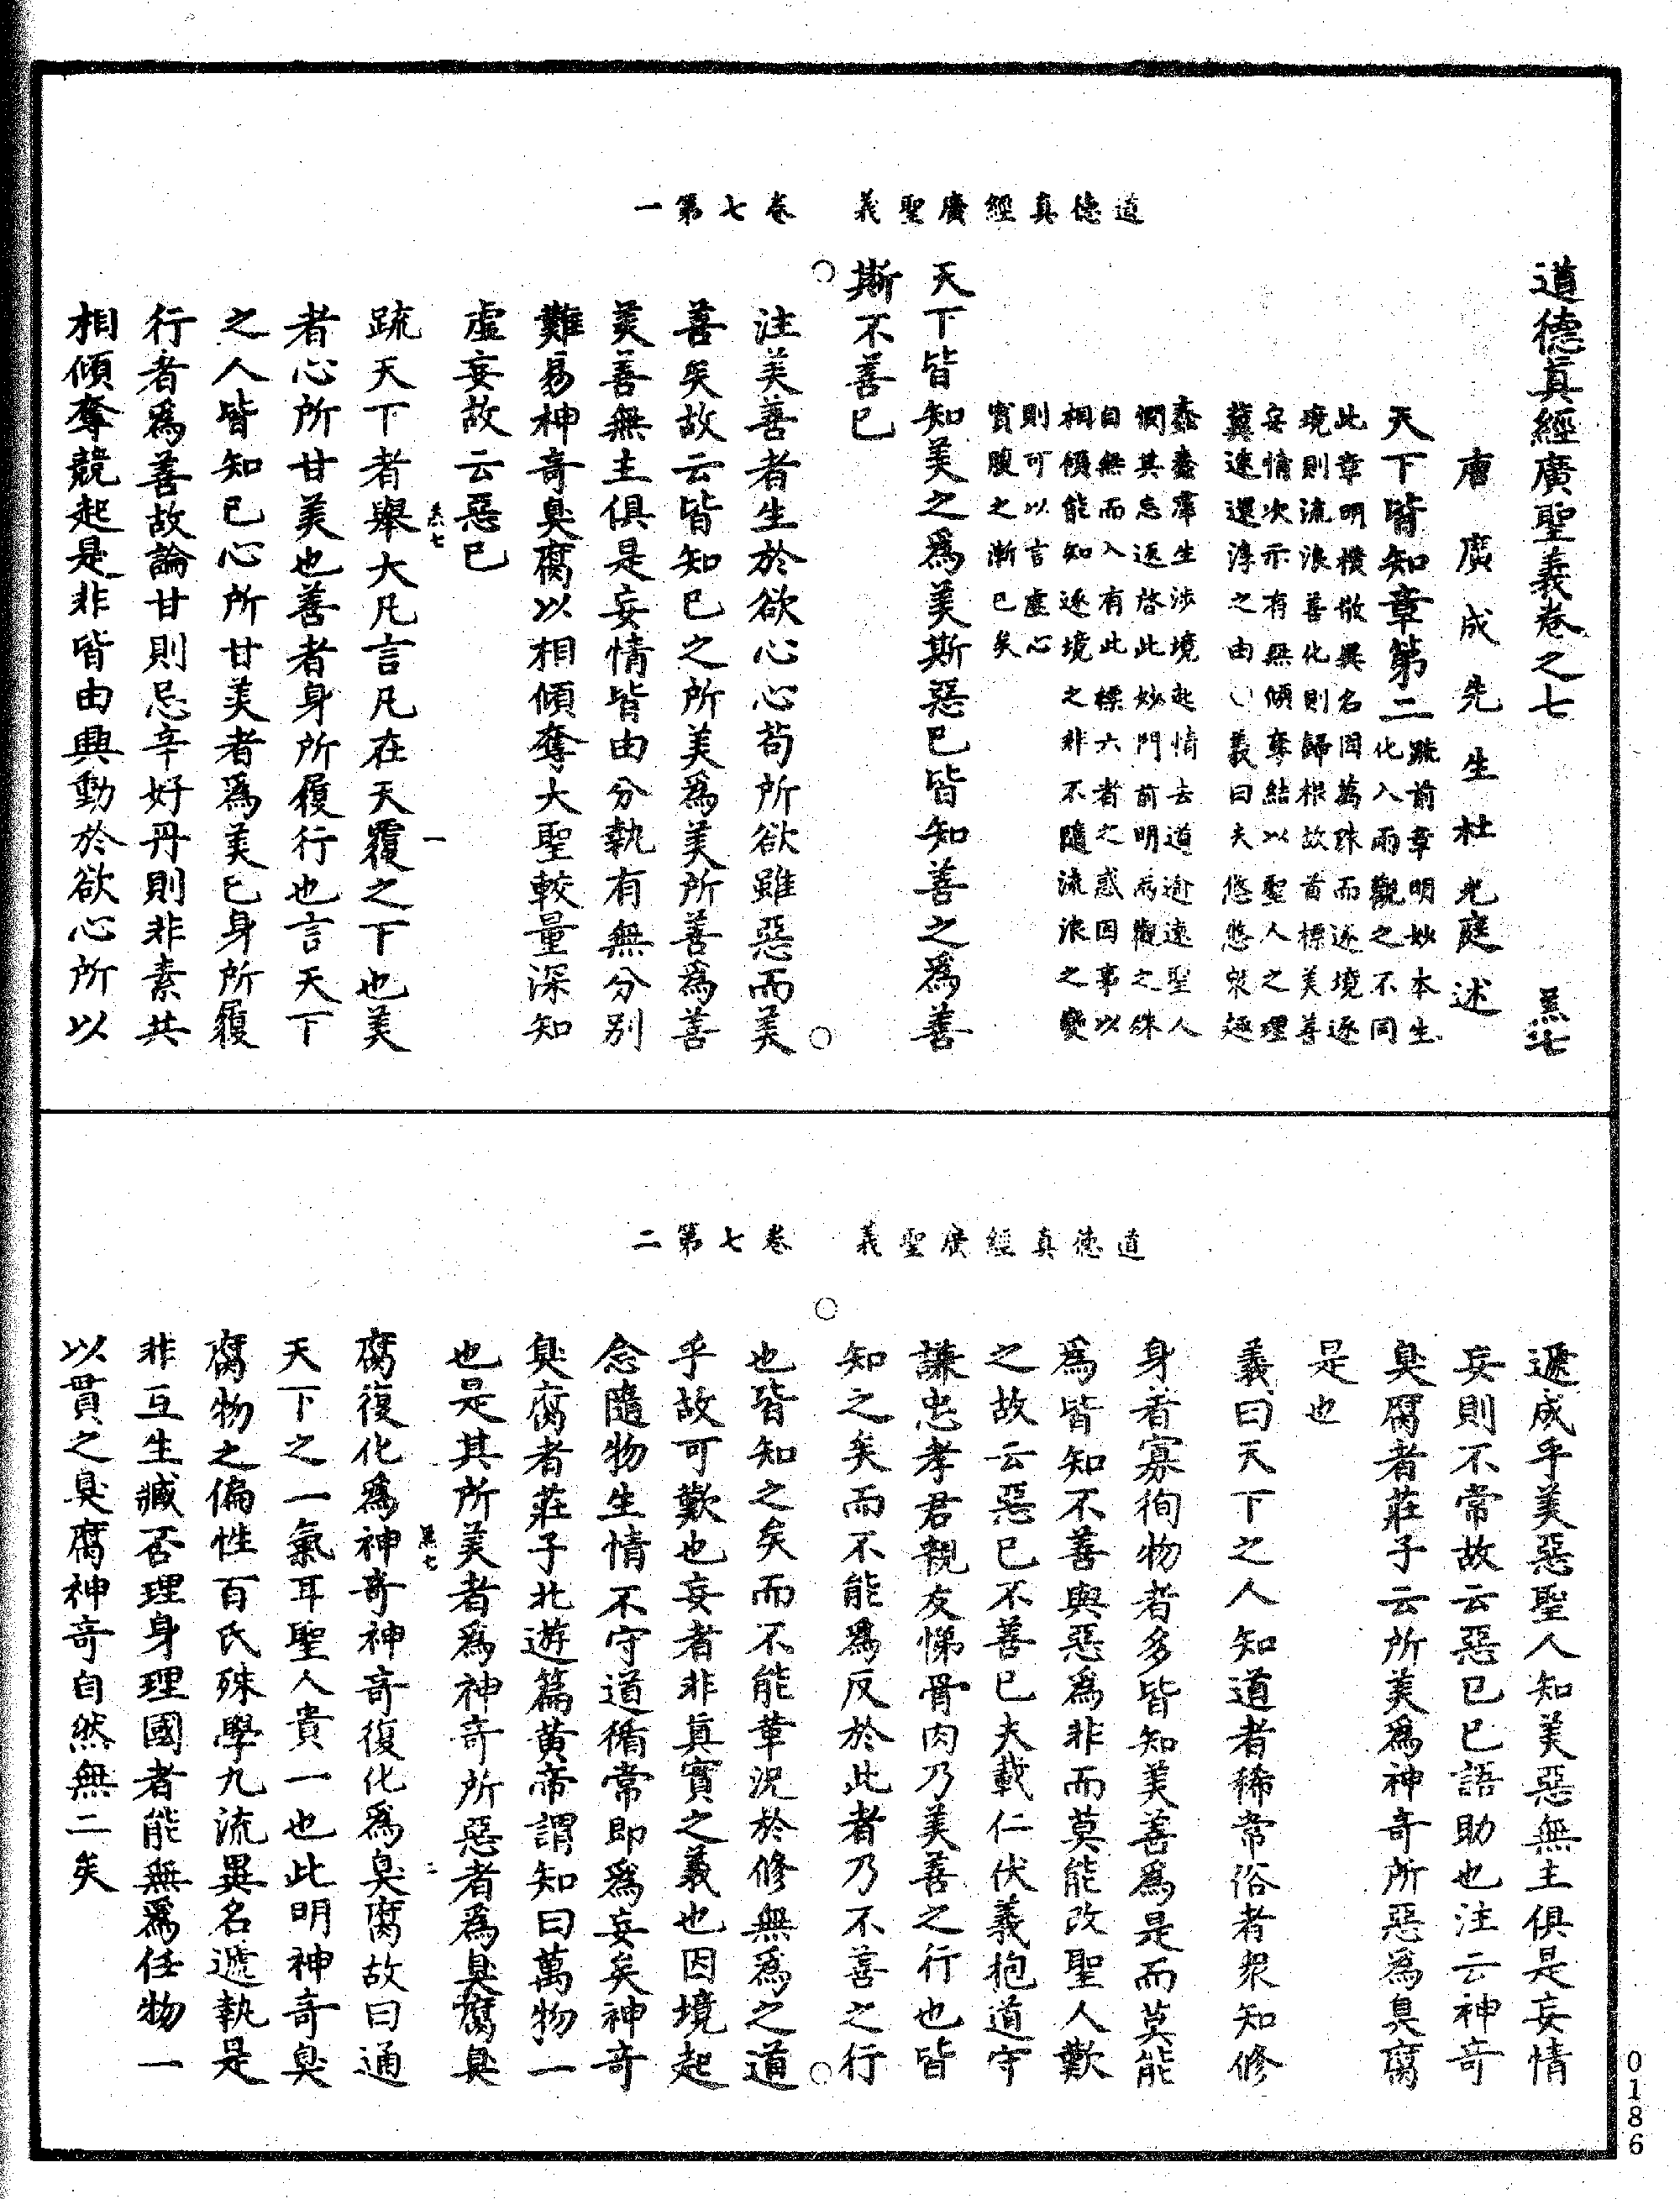 道德真經廣聖義　卷七第一
道德真經廣聖義卷之七　羔七
唐廣成先生杜光庭述
天下皆知章第二
疏前章明妙本生
化入兩觀之不同
此章明樸散異名因萬殊而逐境逐
境則流浪善化則歸根故首標美善
妄情次示有無傾奪結以聖人之理
冀速還淳之由○義曰夫悠悠衆趣
蠢蠢羣生涉境起情去道逾遠聖人
憫其忘返啓此妙門前明兩觀之殊
自無而入有此標六者之惑因事以
相傾能知逐境之非不隨流浪之變
則可以言虛心
實腹之漸已矣
天下皆知美之爲美斯惡已皆知善之爲善
斯不善已
注美善者生於欲心心苟所欲雖惡而美
善矣故云皆知已之所美爲美所善爲善
美善無主俱是妄情皆由分執有無分別
難易神奇臭腐以相傾奪大聖較量深知
虛妄故云惡已
羔七　一
疏天下者舉大凡言凡在天覆之下也美
者心所甘美也善者身所履行也言天下
之人皆知已心所甘美者爲美已身所履
行者爲善故論甘則忌辛好丹則非素共
相傾奪競起是非皆由興動於欲心所以
道德真經廣聖義　卷七第二
遞成乎美惡聖人知美惡無主俱是妄情
妄則不常故云惡已已語助也注云神奇
臭腐者莊子云所美爲神奇所惡為臭腐
是也
義曰天下之人知道者稀常俗者衆知修
身者寡徇物者多皆知美善爲是而莫能
爲皆知不善與惡爲非而莫能改聖人歎
之故云惡已不善已夫載仁伏義抱道守
謙忠孝君親友悌骨肉乃美善之行也皆
知之矣而不能爲反於此者乃不善之行
也皆知之矣而不能革況於修無爲之道
乎故可歎也妄者非真實之義也因境起
念隨物生情不守道循常即爲妄矣神奇
臭腐者莊子北遊篇黃帝謂知曰萬物一
也是其所美者爲神奇所惡者爲臭腐臭
羔七　二
腐復化爲神奇神奇復化爲臭腐故曰通
天下之一氣耳聖人貴一也此明神奇臭
腐物之偏性百氏殊學九流異名遞執是
非互生臧否理身理國者能無爲任物一
以貫之臭腐神奇自然無二矣
0186